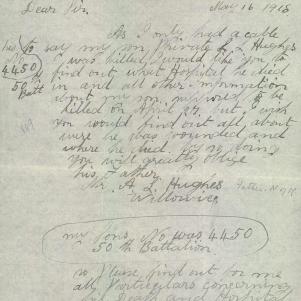 Dear Sir. May 16 1918
As I only had a cable
to say my son Private L. Hughes
4450 was killed, I would like you to
50th find out what Hospital he died
Batt in and all other information
about my son, reported to be
killed on April 27, but I wish
you would find out all about
were he was wounded and
where he died. By so doing
you will greatly oblige
his Father
Mr. A. L. Hughes
Willowie
my sons No was 4450
50th Battalion
so Please find out for me
all Particulars concerning
his Death and Hospital